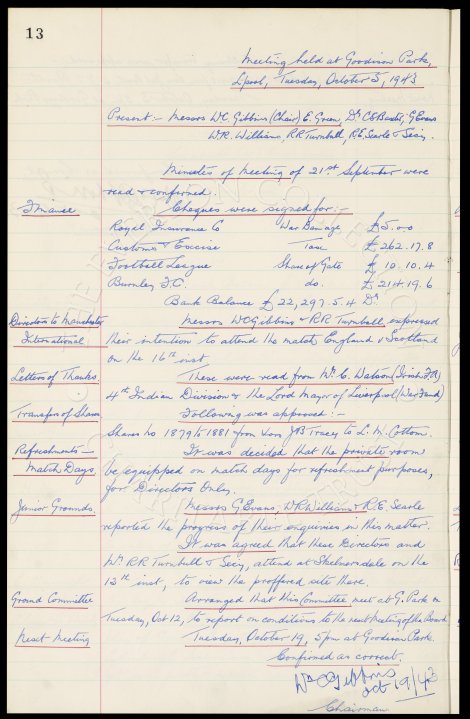 13
Meeting held at Goodison Park,
L'pool, Tuesday, October 5, 1943
Present:- Messrs W.C. Gibbins (Chair) E. Green, Dr C.S. Baxter, G. Evans
W.R. Williams, R.R. Turnbull, R.E. Searle & Secy.
Minutes of Meeting of 21st September were
read & confirmed.
Finance Cheques were signed for:-
Royal Insurance Co War Damage £5.0.0
Customs & Excise Tax £262.17.8
Football League Share of Gate £10.10.4
Burnley F.C. do. £214.19.6
Bank Balance £22,297.5.4 Dr
Directors to Manchester Messrs W.C. Gibbins & R.R. Turnbull, expressed
International their intention to attend the match England v Scotland
on the 16th inst
Letters of Thanks. These were read from Mr. C. Watson (Irish F.A.)
4th Indian Division & the Lord Mayor of Liverpool (War Fund)
Transfer of Shares Following was approved:-
Shares No 1879 to 1881 from J.B. Tracey to L. M. Cottom.
Refreshments - It was decided that the private room
Match Days be equipped on match days for refreshment purposes,
for Directors Only.
Junior Grounds. Messrs G. Evans, W.R. Williams & R.E. Searle
reported the progress of their enquiries in this matter.
It was agreed that these Directors and
Mr. R.R. Turnbull & Secy, attend at on the
13th inst, to view the proffered site there.
Ground Committee Arranged that this Committee meet at G. Park on
Tuesday, Oct 12, to report on conditions to the next meeting of the Board
Next Meeting Tuesday, October 19, 5pm at Goodison Park.
Confirmed as correct.
W C Gibbins
Oct 19/43
Chairman